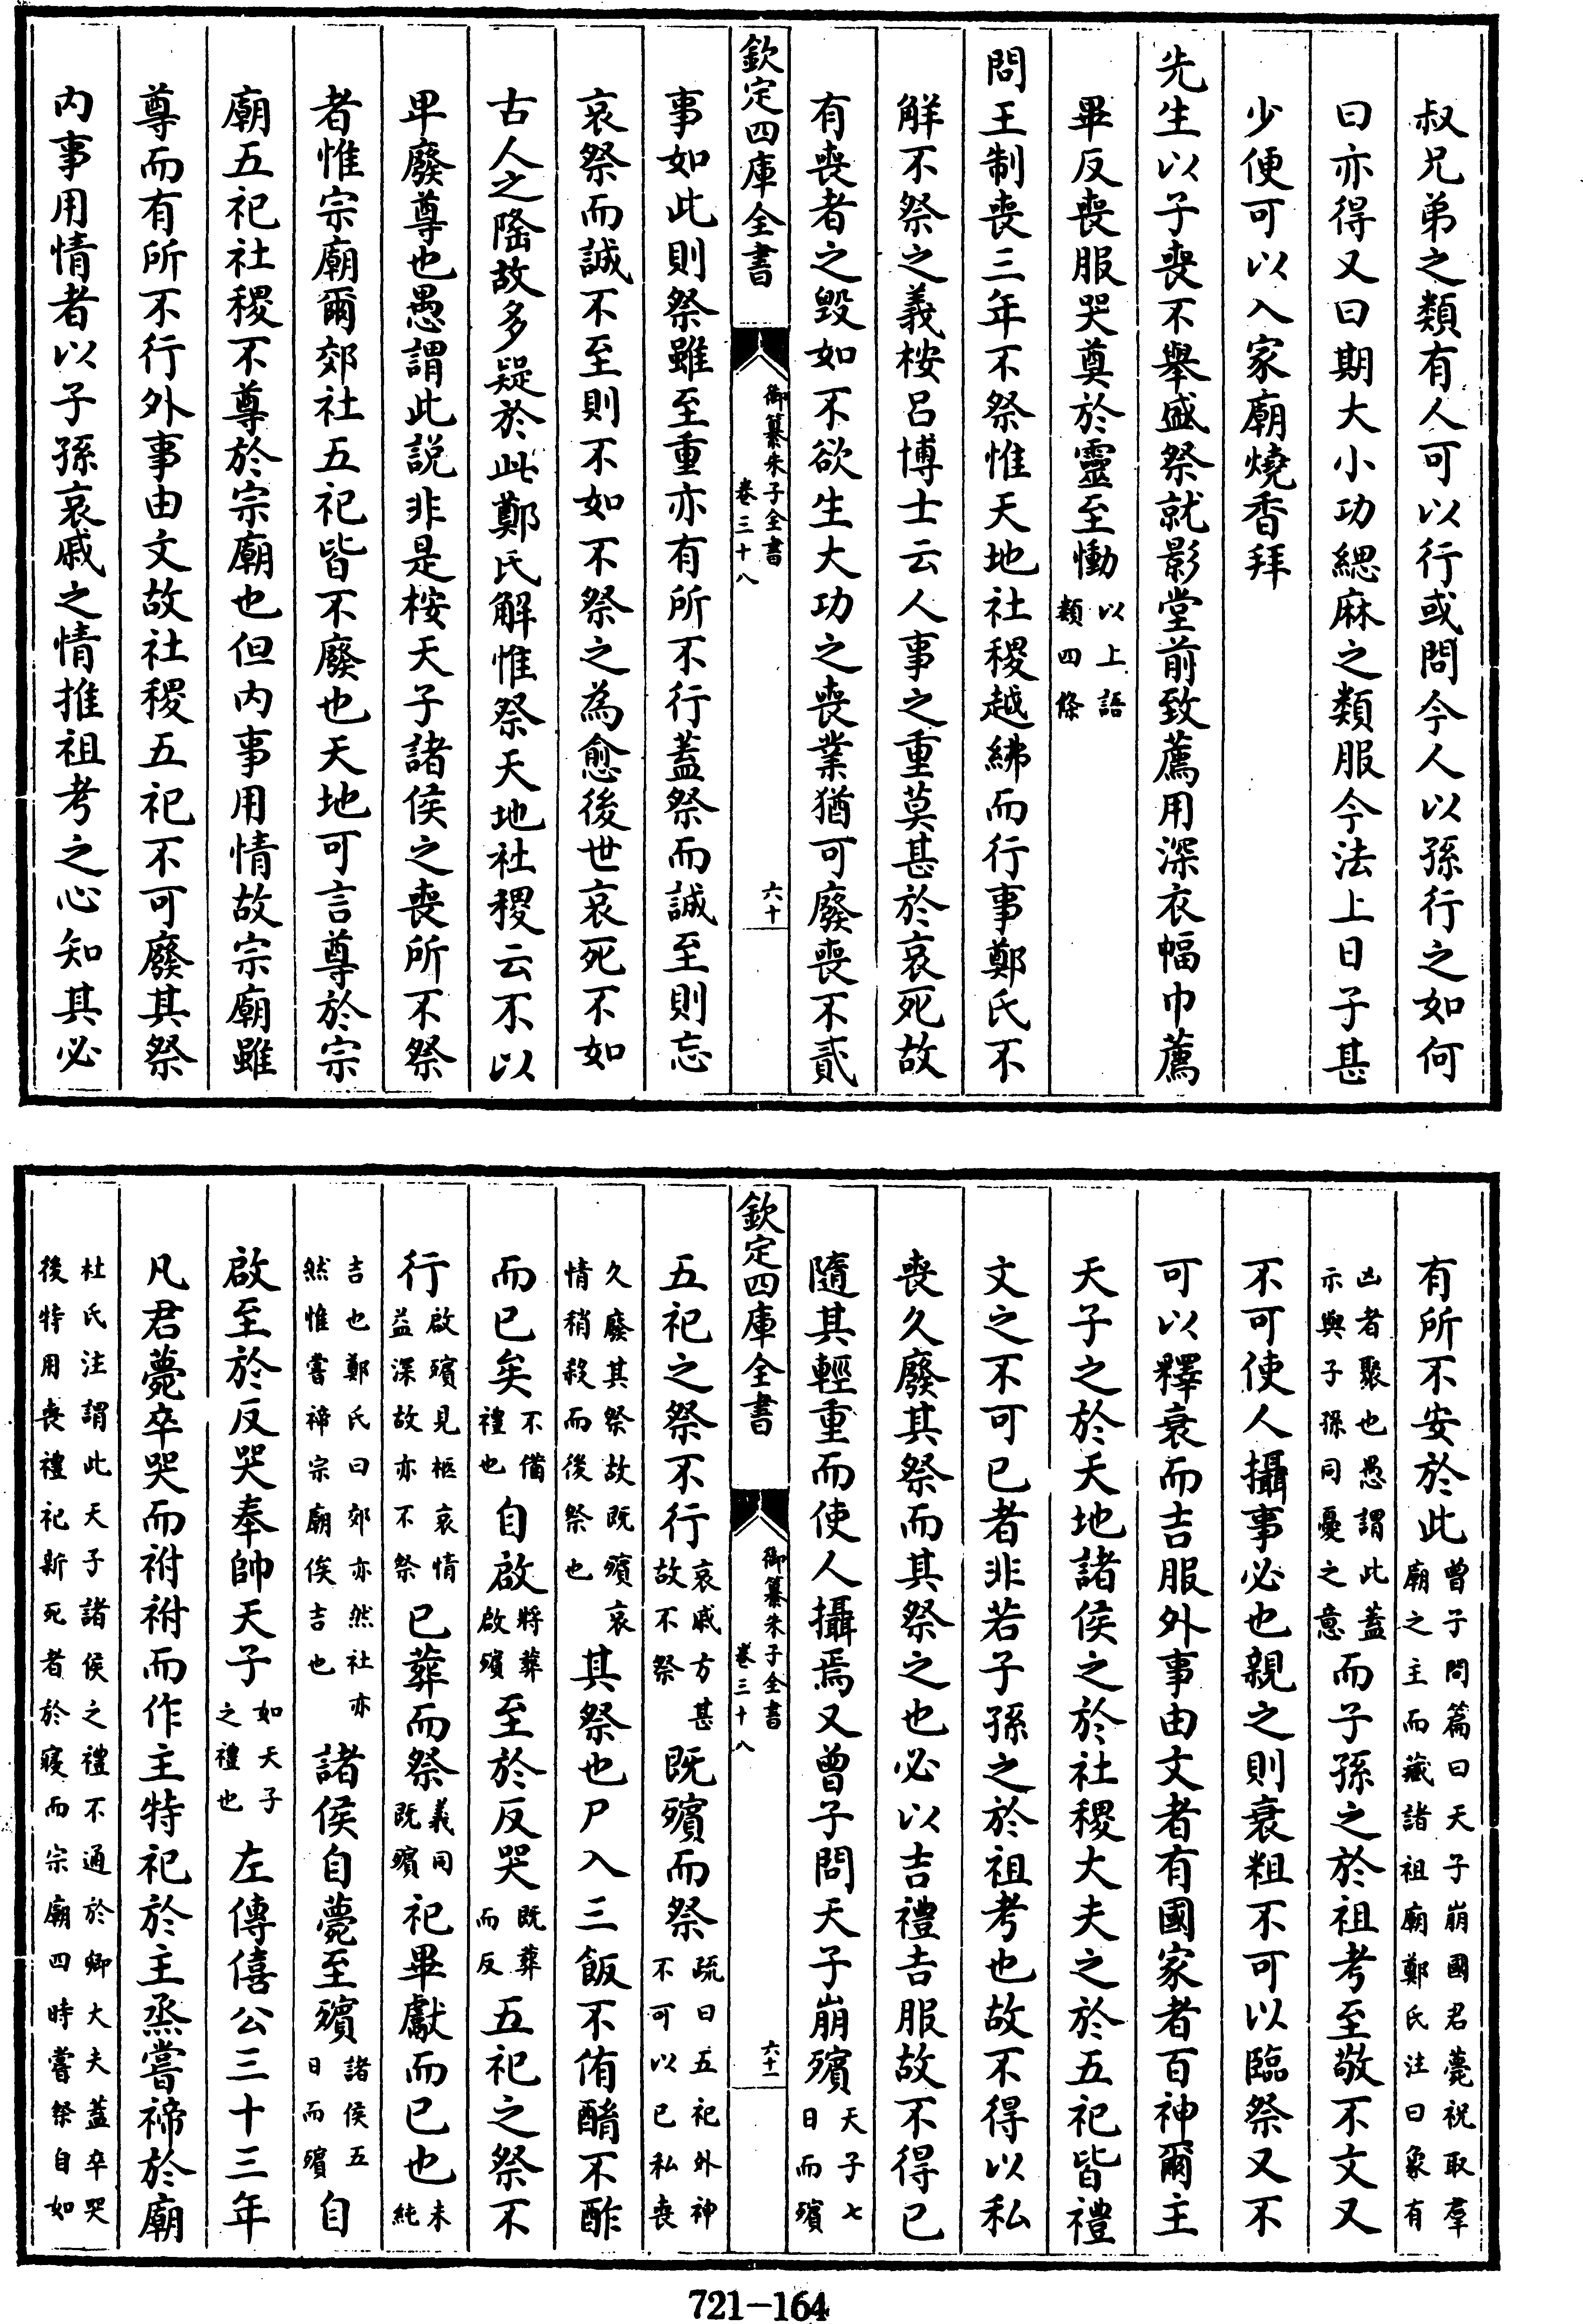 叔兄弟之類有人可以行或問今人以孫行之如何
曰亦得又曰期大小功緦麻之類服今法上日子甚
少便可以入家廟燒香拜
先生以子喪不舉盛祭就影堂前致薦用深衣幅巾薦
畢反喪服哭奠於靈至慟以上語類四條
問王制喪三年不祭惟天地社稷越紼而行事鄭氏不
解不祭之義桉呂博士云人事之重莫甚於哀死故
有喪者之毀如不欲生大功之喪業猶可廢喪不貳
欽定四庫全書
御纂朱子全書
卷三十八
六十
事如此則祭雖至重亦有所不行蓋祭而誠至則忘
哀祭而誠不至則不如不祭之為愈後世哀死不如
古人之隆故多疑於此鄭氏解惟祭天地社稷云不以
卑廢尊也愚謂此説非是桉天子諸侯之喪所不祭
者惟宗廟爾郊社五祀皆不廢也天地可言尊於宗
廟五祀社稷不尊於宗廟也但内事用情故宗廟雖
尊而有所不行外事由文故社稷五祀不可廢其祭
内事用情者以子孫哀戚之情推祖考之心知其必
有所不安於此曾子問篇曰天子崩國君薨祝取羣廟之主而藏諸祖廟鄭氏注曰象有
凶者聚也愚謂此蓋示與子孫同憂之意而子孫之於祖考至敬不文又
不可使人攝事必也親之則衰粗不可以臨祭又不
可以釋衰而吉服外事由文者有國家者百神爾主
天子之於天地諸侯之於社稷大夫之於五祀皆禮
文之不可已者非若子孫之於祖考也故不得以私
喪久廢其祭而其祭之也必以吉禮吉服故不得已
隨其輕重而使人攝焉又曾子問天子崩殯天子七日而殯
欽定四庫全書
御纂朱子全書
卷三十八
六十一
五祀之祭不行哀戚方甚故不祭既殯而祭疏曰五祀外神不可以已私喪
久廢其祭故既殯哀情稍殺而後祭也其祭也尸入三飯不侑酳不酢
而已矣不備禮也自啟將葬啟殯至於反哭既葬而反五祀之祭不
行啟殯見柩哀情益深故亦不祭已葬而祭義同既殯祀畢獻而已也未純
吉也鄭氏曰郊亦然社亦然惟嘗禘宗廟俟吉也諸侯自薨至殯諸侯五日而殯自
啟至於反哭奉帥天子如天子之禮也左傳僖公三十三年
凡君薨卒哭而祔祔而作主特祀於主烝嘗禘於廟
杜氏注謂此天子諸侯之禮不通於卿大夫蓋卒哭後特用喪禮祀新死者於寢而宗廟四時嘗祭自如
721-164